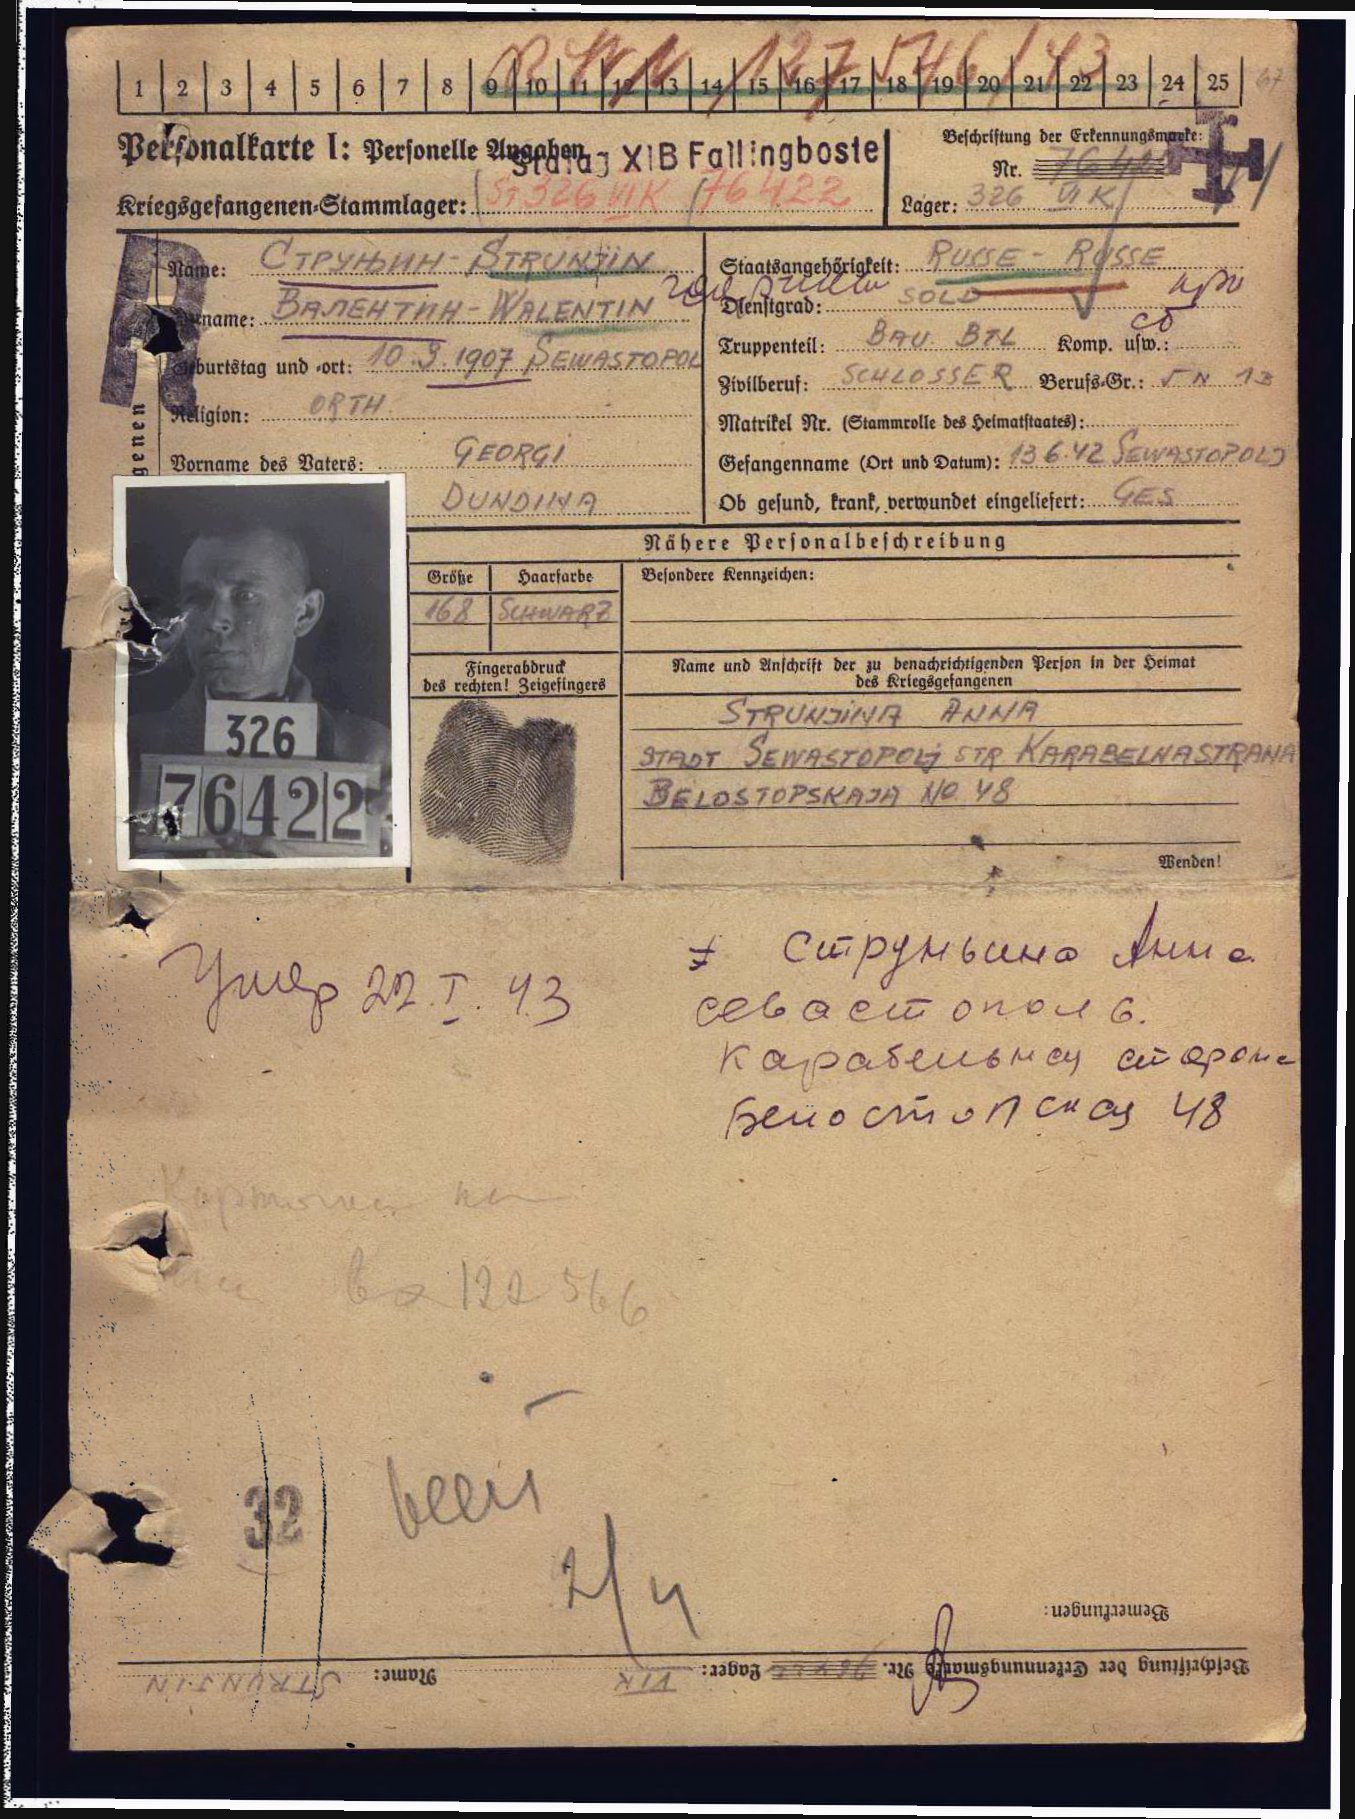 1 2 3 4 5 6 7 8 9 10 11 12 13 14 15 16 17 18 19 20 21 22 23 24 25
Personalkarte I: Personelle Angaben
Stalag XIB Fallingbostel
Kriegsgefangenen-Stammlager: St 326 VI K 76422
Beschriftung der Erkennungsmarke:
Nr. 76422
Lager: 326 VI K
Name: СТРУНЬИН - STRUNJIN
Vorname: ВАЛЕНТИН - WALENTIN
Geburtstag und -ort: 10.9.1907 SEWASTOPOL
Religion: ORTH.
Vorname des Vaters: GEORGI
DUNDINA
Staatsangehörigkeit: RUSSE - RUSSE
Dienstgrad: SOLD
рядовой
Truppenteil: BAU. BTL Komp. usw.:
Zivilberuf: SCHLOSSER Berufs-Gr.:
Matrikel Nr. (Stammrolle des Heimatstaates):
Gefangennahme (Ort und Datum): 13.6.42 SEWASTOPOLJ
Ob gesund, krank, verwundet eingeliefert: GES
Nähere Personalbeschreibung
Größe Haarfarbe Besondere Kennzeichen:
168 SCHWARZ
Fingerabdruck
des rechten! Zeigefingers
Name und Anschrift der zu benachrichtigenden Person in der Heimat
des Kriegsgefangenen
STRUNJINA ANNA
STADT SEWASTOPOLJ STR KARABELNASTRANA
BELOSTOPSKAJA No 48
Wenden!
326
76422
Умер 22.I.43
Струньина Анна
Севастополь.
Карабельная старона
Белостопская 48
вх 122566
32
2/4
Bemerkungen:
Beschriftung der Erkennungsmarke Nr. 76422 Lager: VI K Name: STRUNJIN